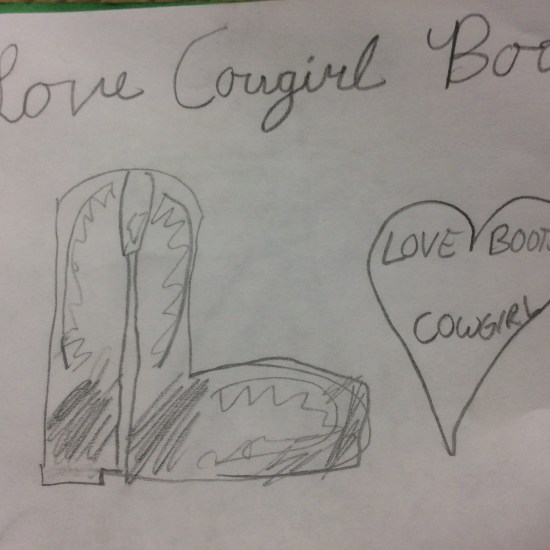 Love Cowgirl Boo
LOVE BOOTS
COWGIRL